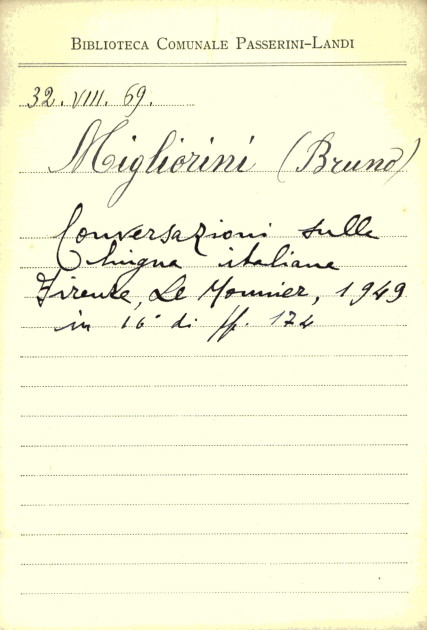 BIBLIOTECA COMUNALE PASSERINI-LANDI
32. VIII. 69.
Migliorini (Bruno)
Conversazioni sulla
lingua italiana
Firenze, Le Monnier, 1949
in 16° di pp. 174